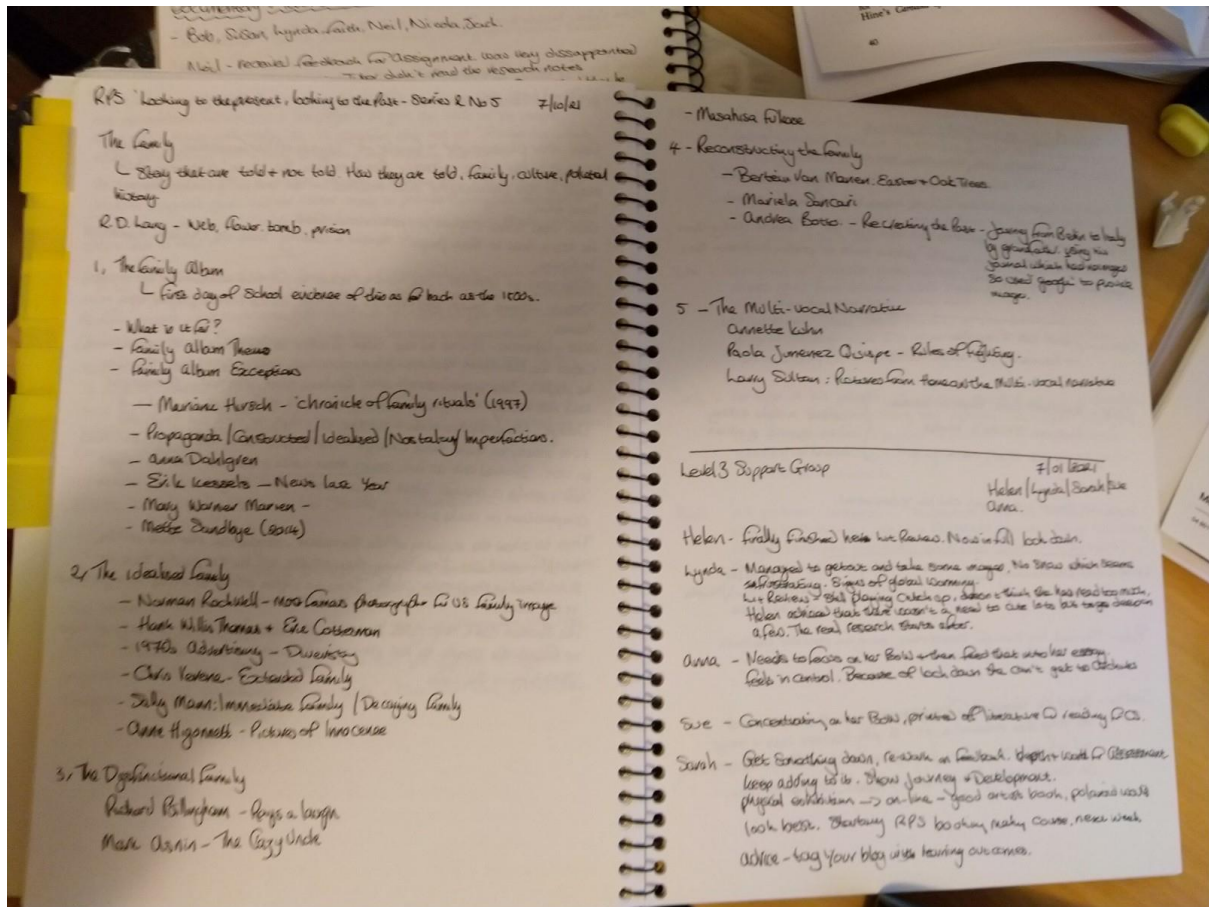 - Bob, Susan, Lynda, Faith, Neil, Nicola, Jack.
Neil - received feedback for Assignment was very disappointed
didn't read the research notes
Hine's
40
RPS 'Looking to the present, looking to the Past - Series 2 No 5 7/10/21
The Family
└ Story that are told + not told. How they are told, family, culture, political
history
R.D. Laing - Web, flower, tomb, prison
1, The family Album
└ First day of School evidence of this as far back as the
- What is it for?
- family album Theme
- family album Exceptions
- Marianne Hirsch - 'chronicle of family rituals' (1997)
- Propaganda / Constructed / idealised / Nostalgy / Imperfections.
- Anna Dahlgren
- Erik Kessels - News last Year
- Mary Warner Marien -
- Mette Sandbye (2014)
2, The idealised family
- Norman Rockwell - most famous photographer for US family image
- Hank Willis Thomas + Eric
- 1970s advertising - Diversity
- Chris Verene - Extended family
- Sally Mann: Immediate family / Decaying family
- Anne Higonnett - Pictures of Innocense
3, The Dysfunctional Family
Richard Billingham - Rays a laugh
Mark Asnin - The Cazy Uncle
- Masahisa Fukase
4 - Reconstructing the family
- Bertein Van Manen. Easter + Oak Trees
- Mariela Sancari
- Andrea Botto. - Recreating the Past - Journey from Berlin to Italy
by grandfather using his
journal which had no images
so used 'google' to provide
images.
5 - The Multi-vocal Narrative
Annette Kuhn
Paola Jimenez Quispe - Rules of fighting.
Larry Sultan: Pictures from Home and the Multi-vocal narrative
Level 3 Support Group 7/01/2021
Helen / Lynda / Sarah / Sue
Anna.
Helen - finally finished her Lit Review. Now in full lock down.
Lynda - Managed to get out and take some images. No Snow which seems
so frustrating. Signs of global warming.
Lit Review - still playing catch up, doesn't think she has read too much.
Helen advised that there wasn't a need to cite lots but to go deeper in
a few. The real research starts after.
Anna - Needs to focus on her BoW + then feed that into her essay.
feels in control. Because of lock down she can't get to archives
Sue - Concentrating on her BoW, printed off literature reading
Sarah - Get Something down, re-work on feedback. for assessment
keep adding to it. Show Journey + Development.
physical exhibition → on-line - good artist book, polaroid would
look best. Starting RPS book making course, next week
advice - tag your blog with learning outcomes.